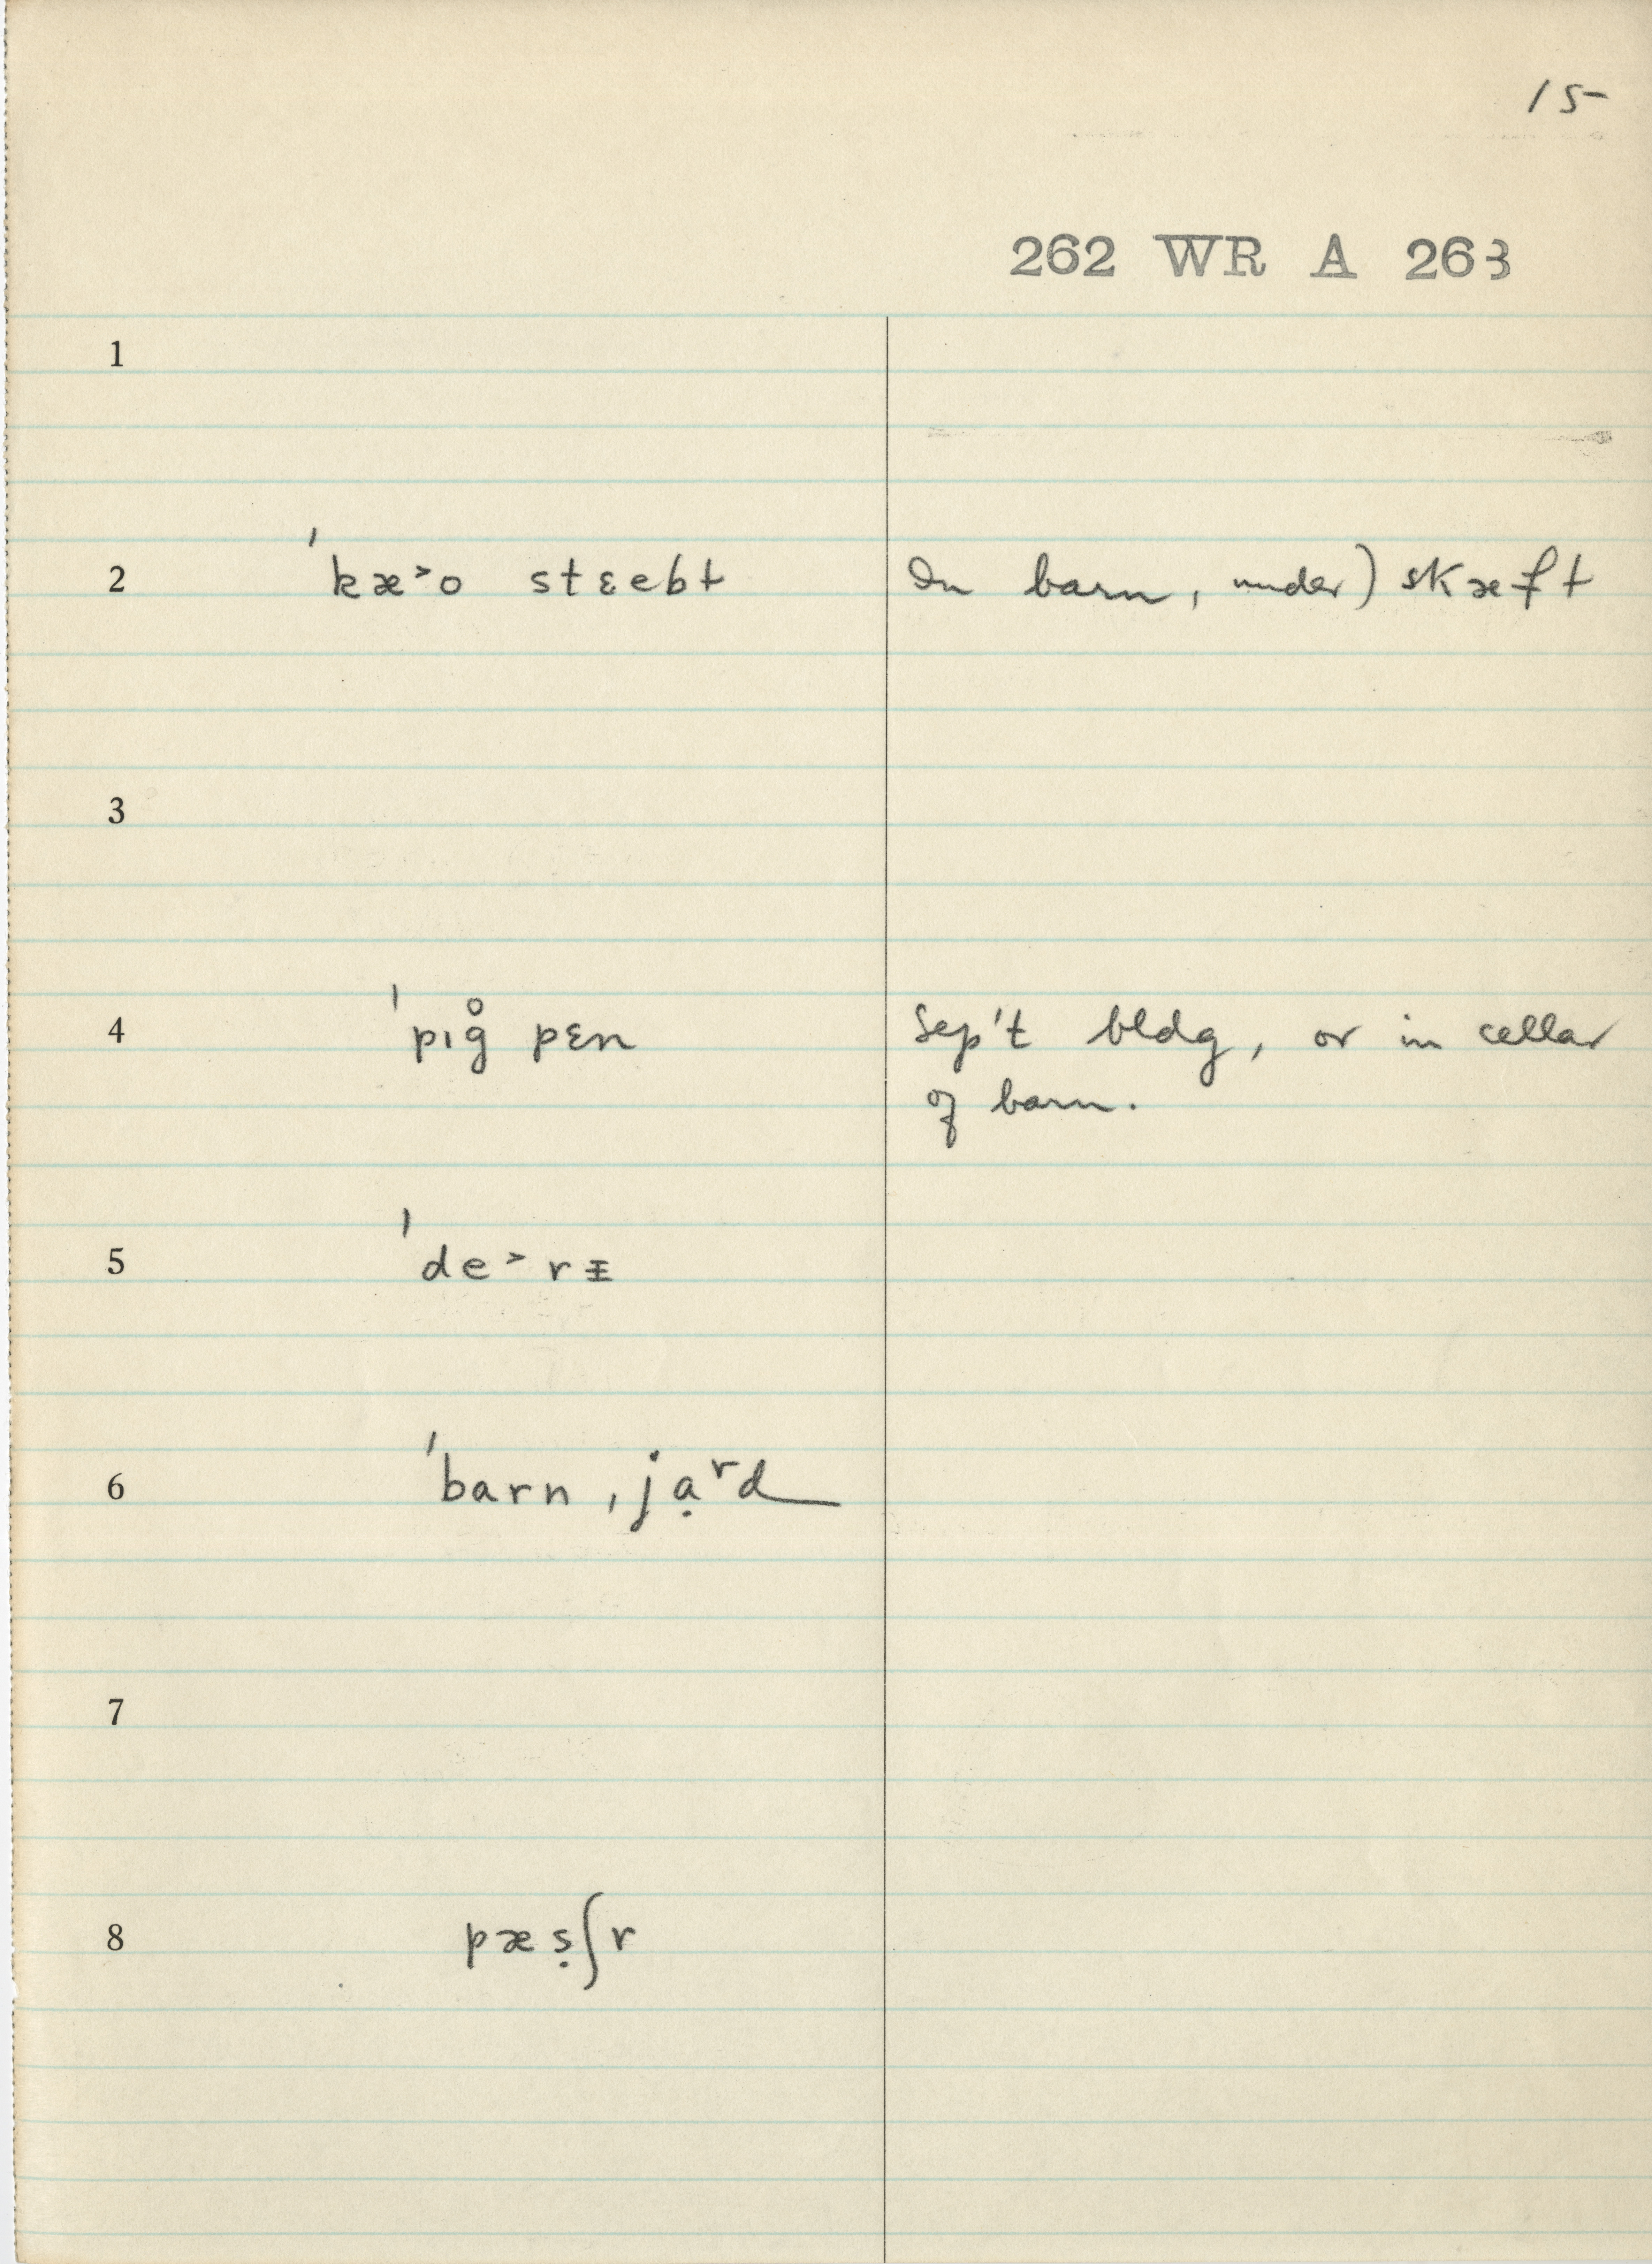 15
262 WR A 263
1
2 ˈkæ˃o stɛebɫ In barn, under) skæfɫ
3
4 ˈpɪg̊ pɛn Sep't bldg, or in cellar
of barn.
5 ˈde˃rᵻ
6 ˈbarn ˌjạʳd
7
8 pæṣʃr